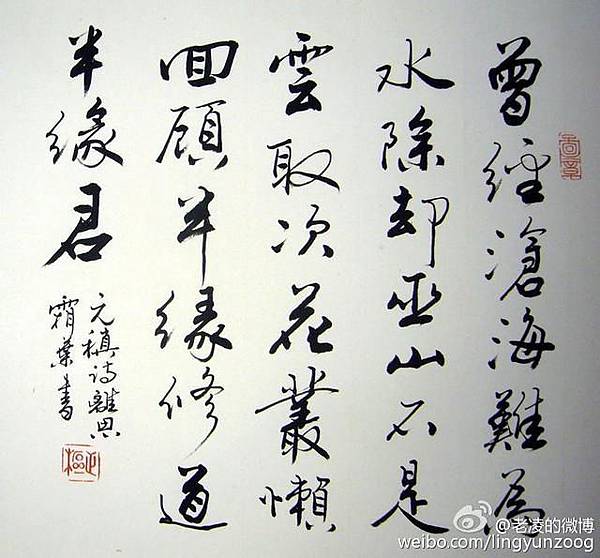 曾經滄海難為
水除却巫山不是
雲取次花叢懶
回顧半缘修道
半缘君
元稹詩離思
霜葉書
@老凌的微博
weibo.com/lingyunzoog